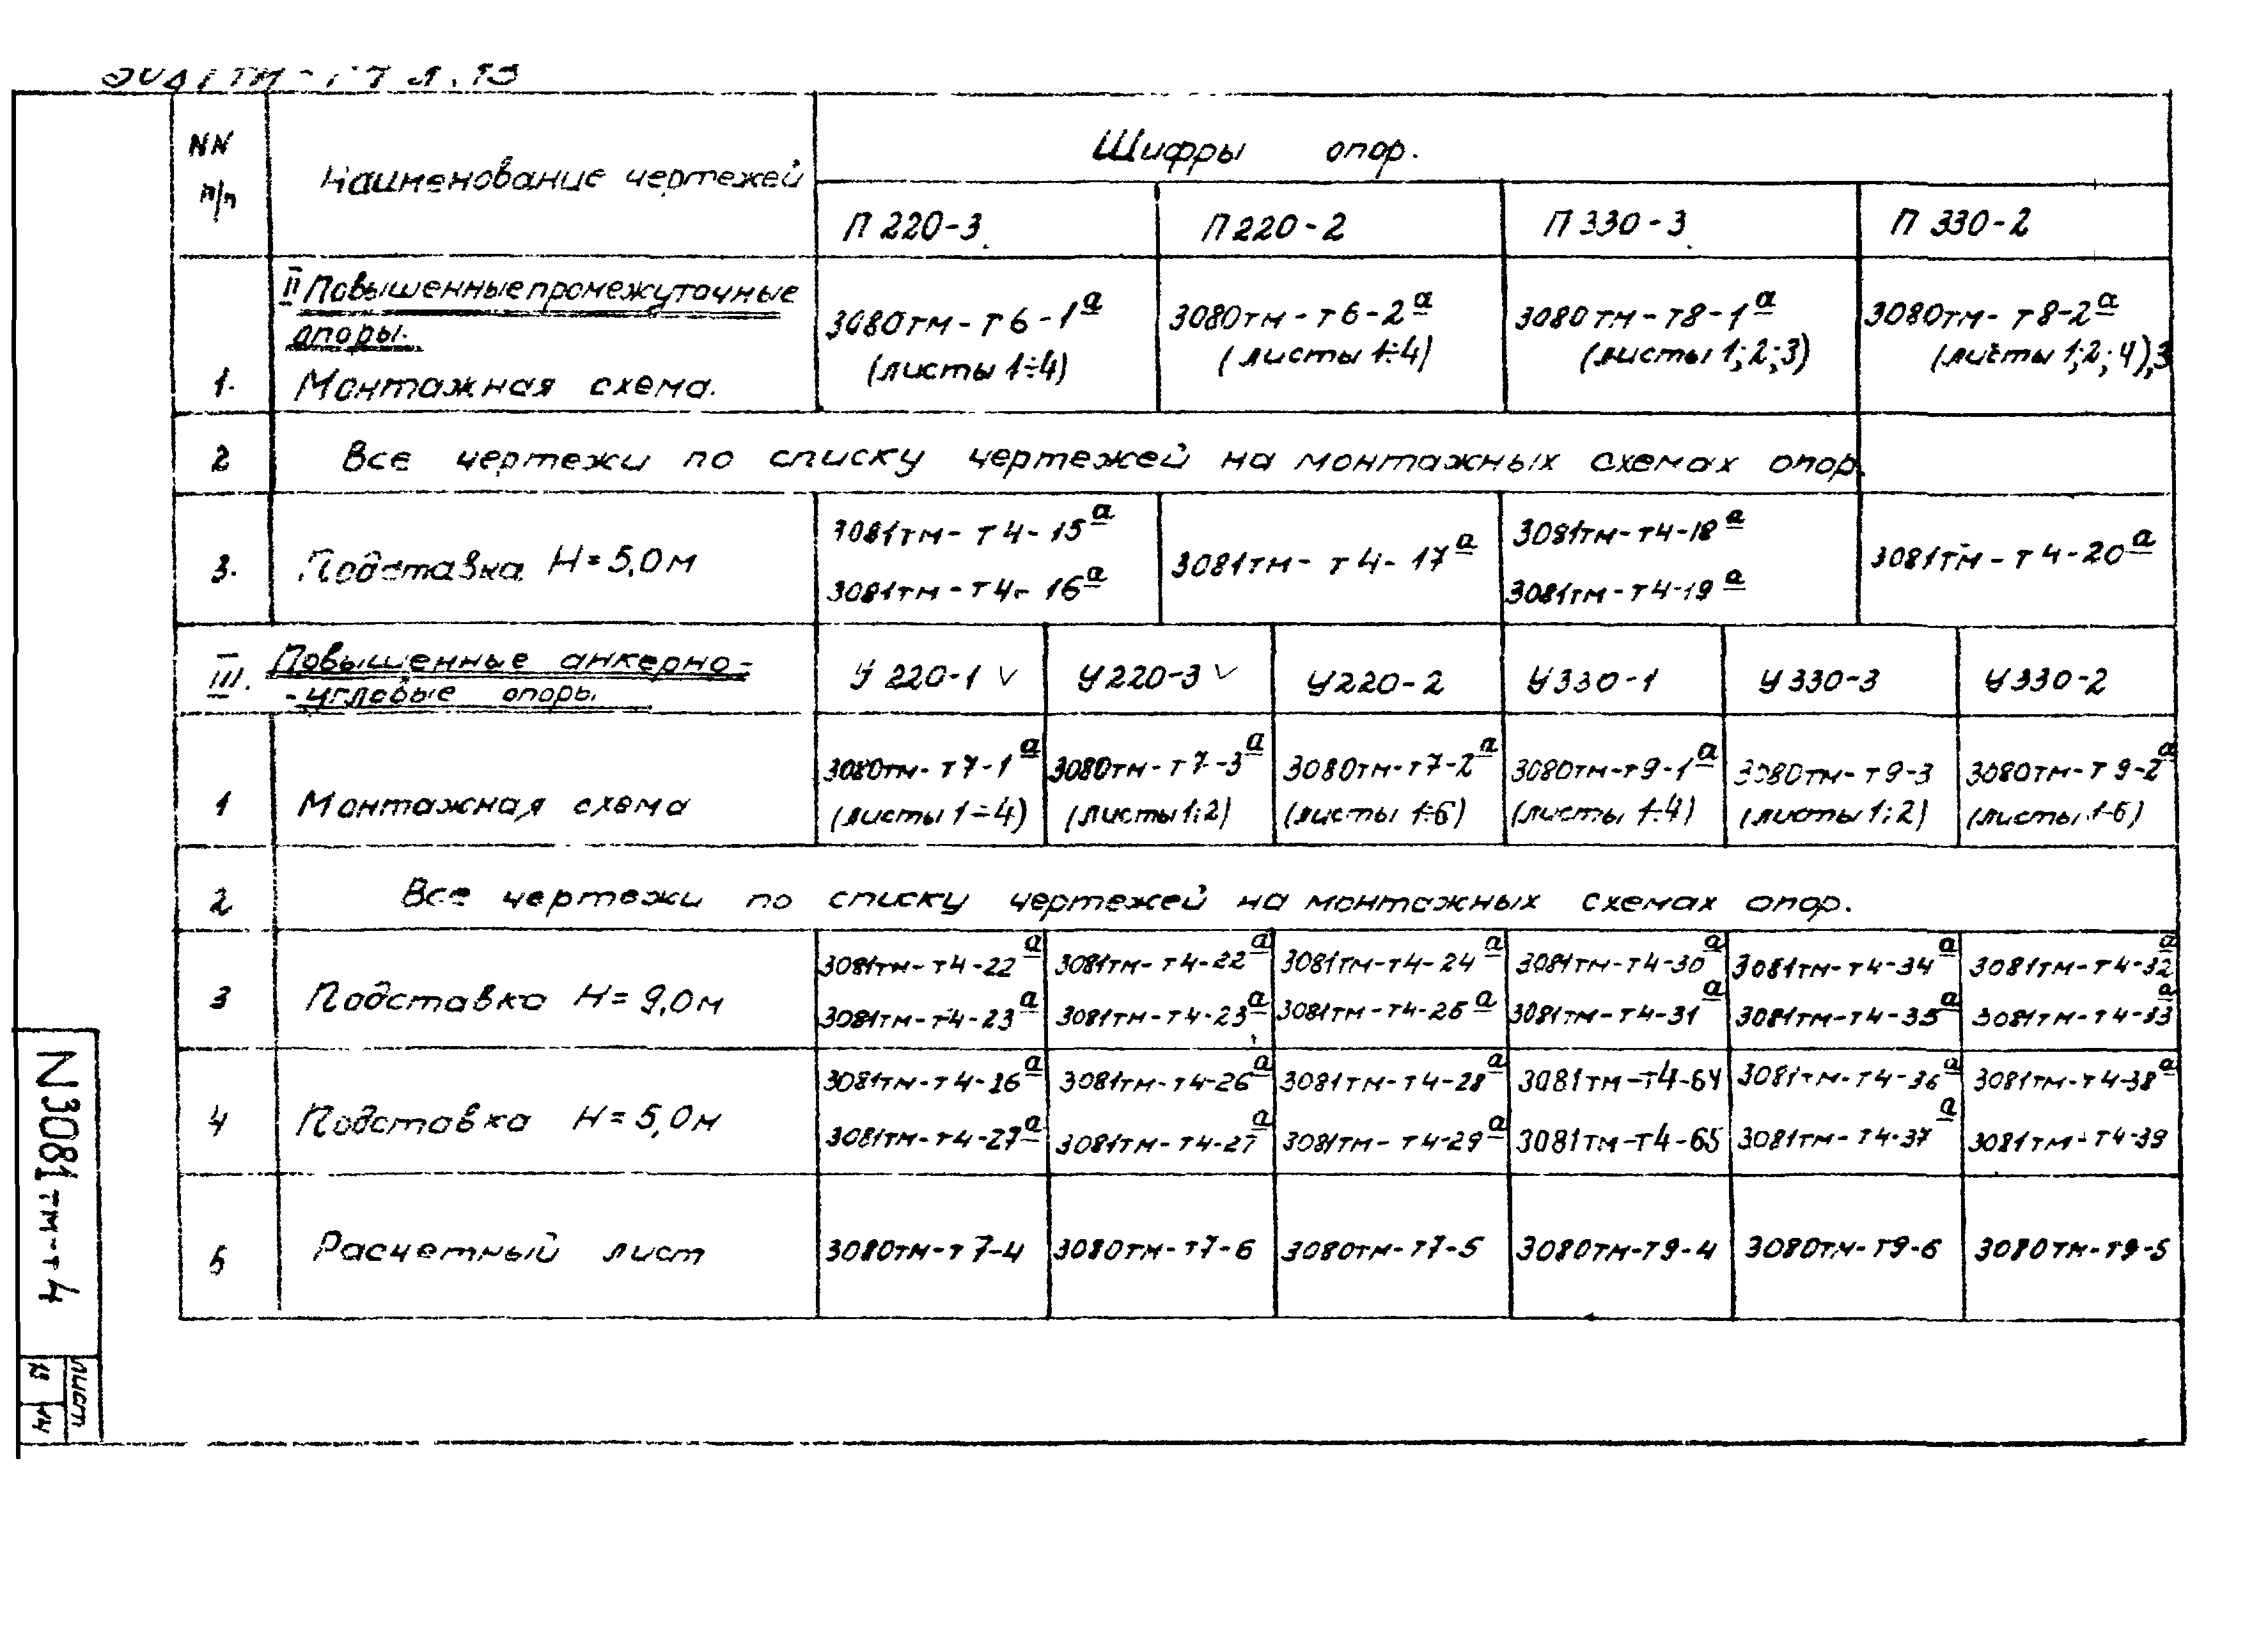 NN п/п
Наименование чертежей
Шифры опор.
П 220-3
П 220-2
П 330-3
П 330-2
II Повышенные промежуточные
опоры.
1. Монтажная схема.
3080тм-т6-1а
(листы 1÷4)
3080тм-т6-2а
(листы 1÷4)
3080тм-т8-1а
(листы 1;2;3)
3080тм-т8-2а
(листы 1;2;4),3
2 Все чертежи по списку чертежей на монтажных схемах опор.
3. Подставка Н=5,0м
3081тм-т4-15а
3081тм-т4-16а
3081тм-т4-17а
3081тм-т4-18а
3081тм-т4-19а
3081тм-т4-20а
III. Повышенные анкерно-
-угловые опоры.
У 220-1 ✓
У 220-3 ✓
У 220-2
У 330-1
У 330-3
У 330-2
1 Монтажная схема
3080тм-т7-1а
(листы 1÷4)
3080тм-т7-3а
(листы 1;2)
3080тм-т7-2а
(листы 1÷6)
3080тм-т9-1а
(листы 1÷4)
3080тм-т9-3
(листы 1;2)
3080тм-т9-2а
(листы 1-6)
2 Все чертежи по списку чертежей на монтажных схемах опор.
3 Подставка Н=9,0м
3081тм-т4-22а
3081тм-т4-23а
3081тм-т4-22а
3081тм-т4-23а
3081тм-т4-24а
3081тм-т4-25а
3081тм-т4-30а
3081тм-т4-31а
3081тм-т4-34а
3081тм-т4-35а
3081тм-т4-32а
3081тм-т4-33а
4 Подставка Н=5,0м
3081тм-т4-26а
3081тм-т4-27а
3081тм-т4-26а
3081тм-т4-27а
3081тм-т4-28а
3081тм-т4-29а
3081тм-т4-64
3081тм-т4-65
3081тм-т4-36а
3081тм-т4-37а
3081тм-т4-38а
3081тм-т4-39
5 Расчетный лист
3080тм-т7-4
3080тм-т7-6
3080тм-т7-5
3080тм-т9-4
3080тм-т9-6
3080тм-т9-5
N3081тм-т4
лист